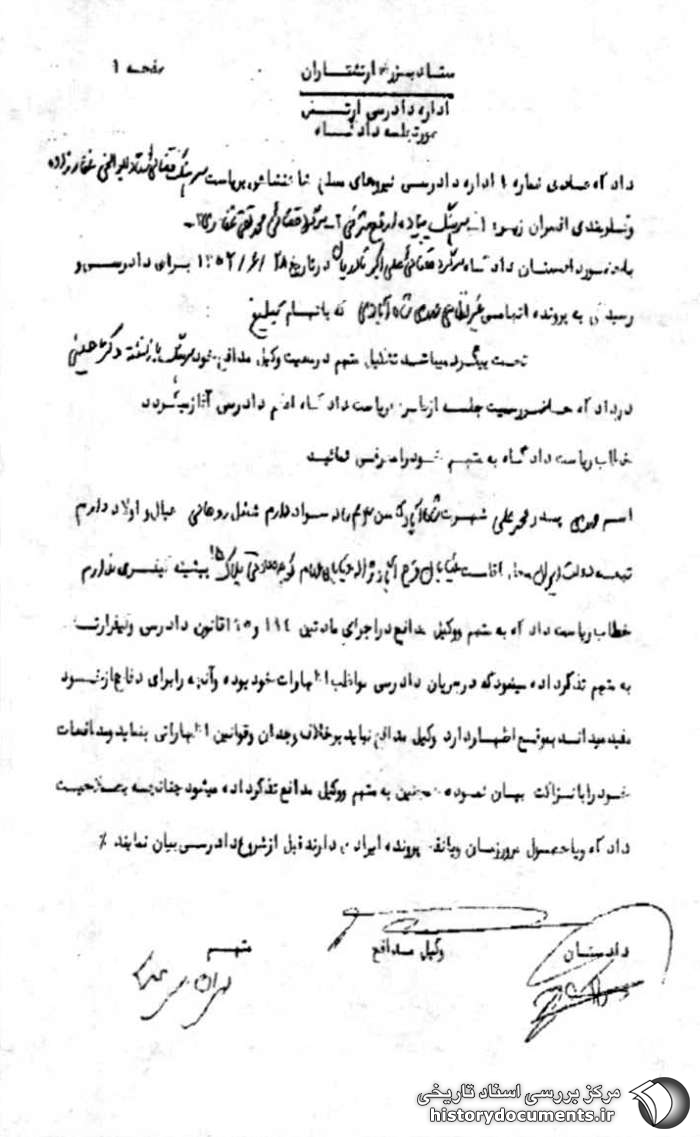 صفحه ۱
ستاد بزرگ ارتشتاران
اداره دادرسی ارتش
صورتجلسه دادگاه
دادگاه عادی شماره ۱ اداره دادرسی نیروهای مسلح شاهنشاهی بریاست سرهنگ قضائی
و بعضویت افسران زیر: ۱- سرهنگ پیاده ۲- سرگرد قضائی محمدتقی غفاری
با حضور دادستان دادگاه سرگرد قضائی علی اکبر در تاریخ ۲۸/ ۶/ ۱۳۵۲ برای دادرسی و
رسیدگی به پرونده اتهامی غیرنظامی مهدی شاه آبادی که باتهام تبلیغ
تحت پیگرد میباشد تشکیل متهم در معیت وکیل مدافع خود سرهنگ بازنشسته دکتر
در دادگاه حاضر رسمیت جلسه از ناحیه ریاست دادگاه اعلام دادرسی آغاز میگردد
خطاب ریاست دادگاه به متهم خود را معرفی نمائید
اسم مهدی پدر محمدعلی شهرت شاه آبادی سن سواد دارم شغل روحانی عیال و اولاد دارم
تبعه دولت ایران محل اقامت خیابان فرح آباد ژاله خیابان کوچه پلاک ۱۵ پیشینه کیفری ندارم
خطاب ریاست دادگاه به متهم و وکیل مدافع در اجرای مادتین ۱۹۴ و ۱۹۵ قانون دادرسی و کیفر ارتش
به متهم تذکر داده میشود که در جریان دادرسی مواظب اظهارات خود بوده و آنچه را برای دفاع از خود
مفید میداند بموقع اظهار دارد وکیل مدافع نباید برخلاف وجدان و قوانین اظهاراتی بنماید و مدافعات
خود را با نزاکت بیان نموده همچنین به متهم و وکیل مدافع تذکر داده میشود چنانچه بصلاحیت
دادگاه و یا حصول مرور زمان و یا نقص پرونده ایرادی دارند قبل از شروع دادرسی بیان نمایند ٪
دادستان
وکیل مدافع
متهم
مرکز بررسی اسناد تاریخی
historydocuments.ir